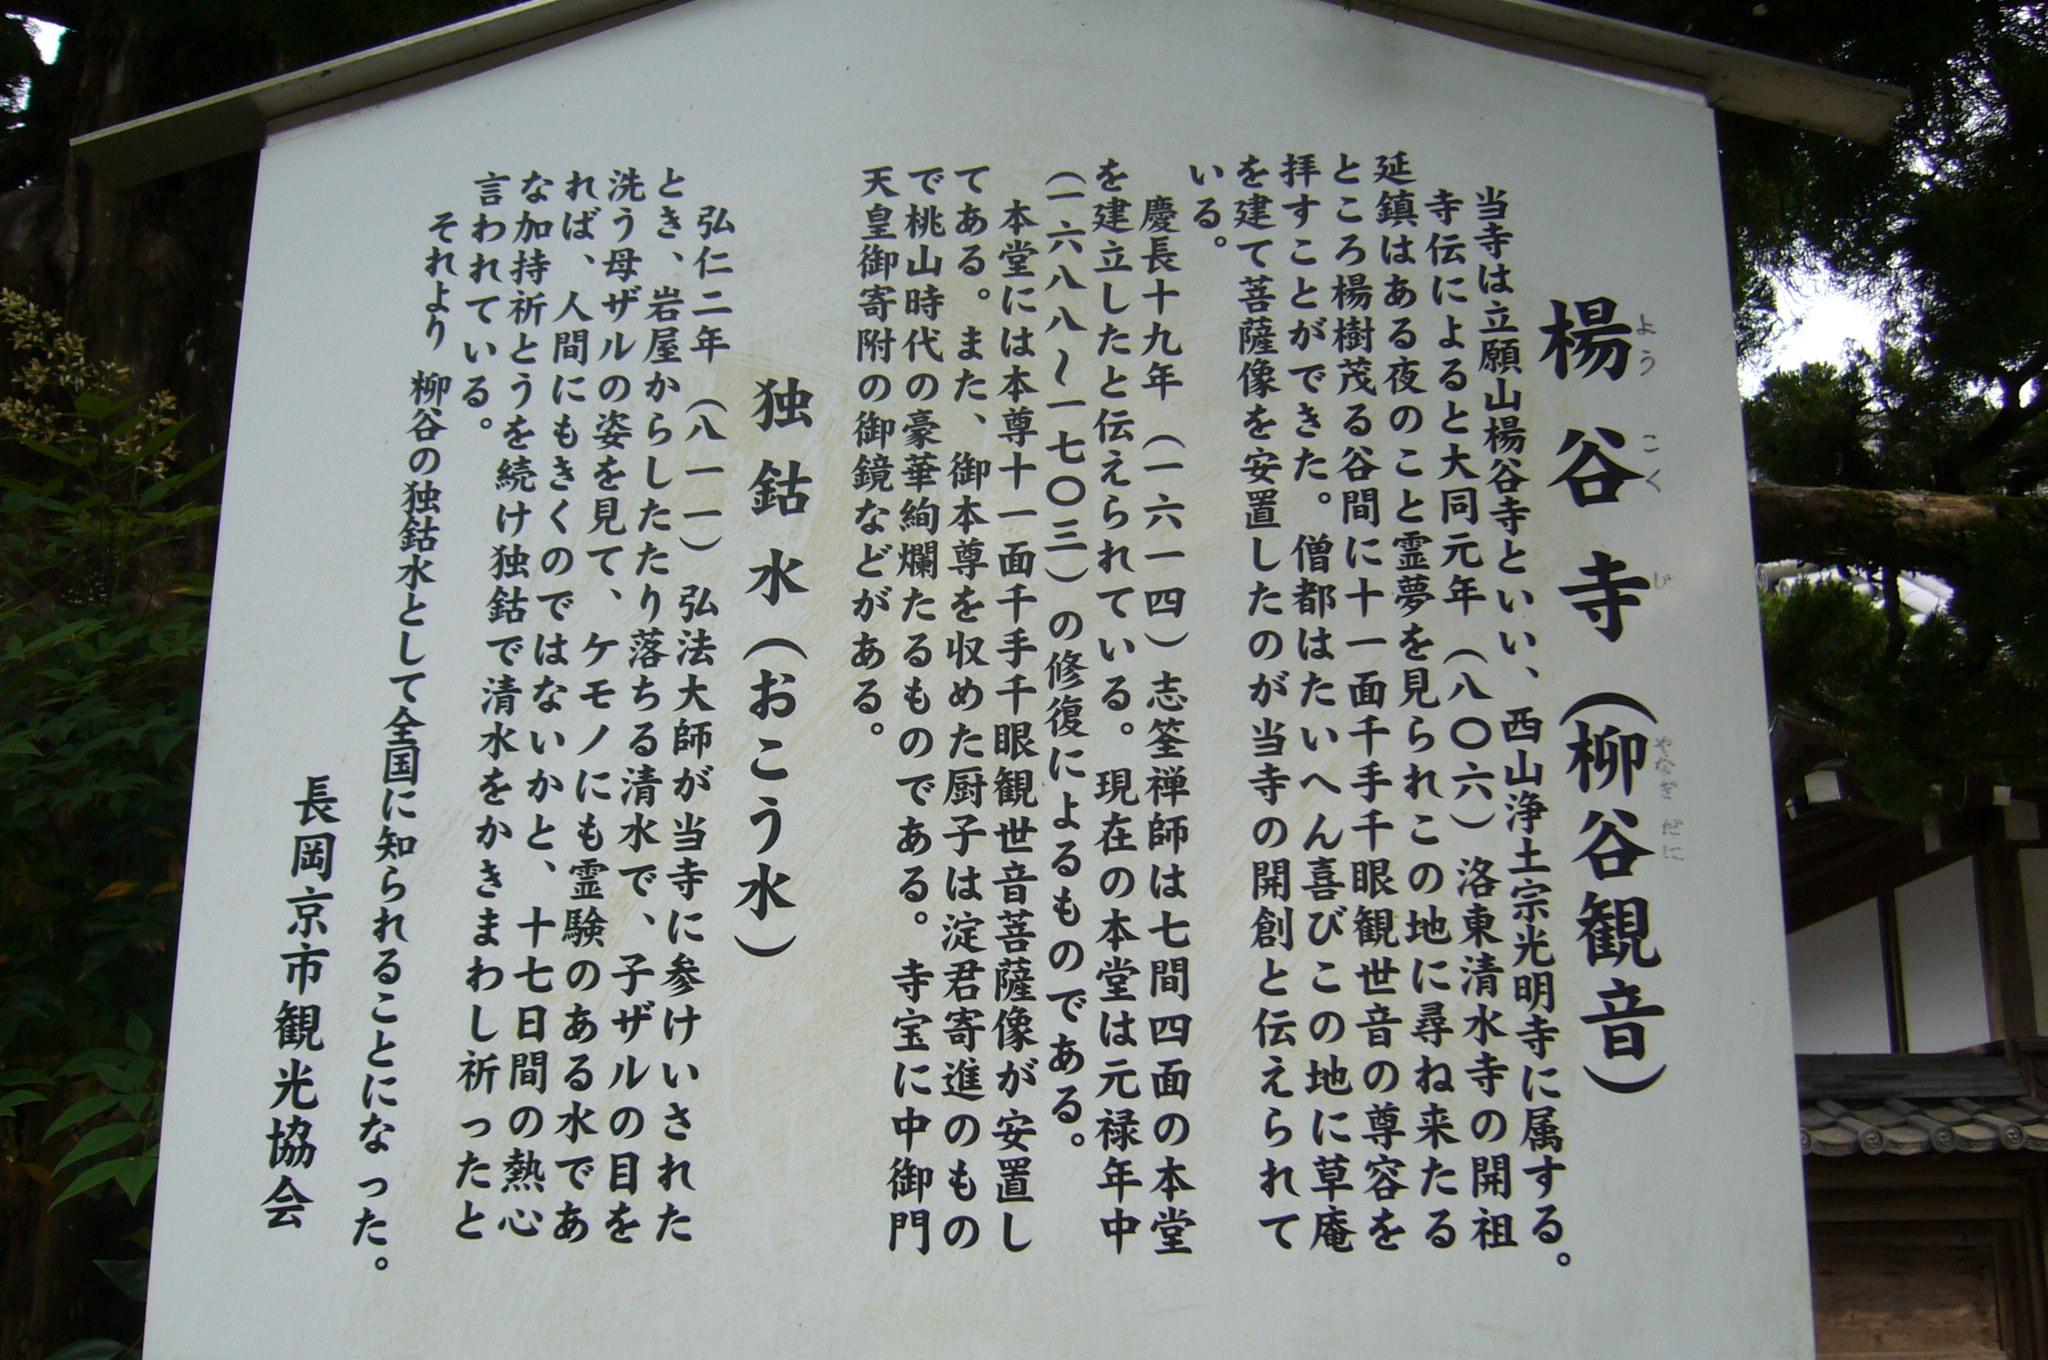 楊谷寺（柳谷観音）
よう こく じ やなぎ だに
当寺は立願山楊谷寺といい、西山浄土宗光明寺に属する。
寺伝によると大同元年（八〇六）洛東清水寺の開祖
延鎮はある夜のこと霊夢を見られこの地に尋ね来たる
ところ楊樹茂る谷間に十一面千手千眼観世音の尊容を
拝すことができた。僧都はたいへん喜びこの地に草庵
を建て菩薩像を安置したのが当寺の開創と伝えられて
いる。
慶長十九年（一六一四）志筌禅師は七間四面の本堂
を建立したと伝えられている。現在の本堂は元禄年中
（一六八八〜一七〇三）の修復によるものである。
本堂には本尊十一面千手千眼観世音菩薩像が安置し
てある。また、御本尊を収めた厨子は淀君寄進のもの
で桃山時代の豪華絢爛たるものである。寺宝に中御門
天皇御寄附の御鏡などがある。
独鈷水（おこう水）
弘仁二年（八一一）弘法大師が当寺に参けいされた
とき、岩屋からしたたり落ちる清水で、子ザルの目を
洗う母ザルの姿を見て、ケモノにも霊験のある水であ
れば、人間にもきくのではないかと、十七日間の熱心
な加持祈とうを続け独鈷で清水をかきまわし祈ったと
言われている。
それより 柳谷の独鈷水として全国に知られることになった。
長岡京市観光協会